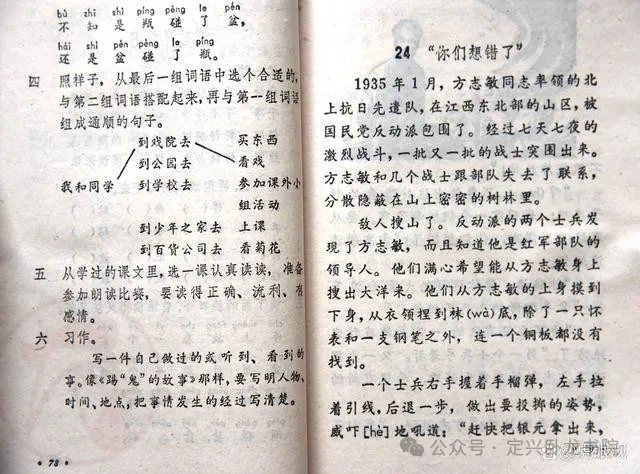 bù zhī shì píng pèng le pén,
不知是瓶碰了盆,
hái shì pén pèng le píng.
还是盆碰了瓶。
四 照样子,从最后一组词语中选个合适的,
与第二组词语搭配起来,再与第一组词语
组成通顺的句子。
到戏院去 买东西
到公园去 看戏
我和同学 到学校去 参加课外小
组活动
到少年之家去 上课
到百货公司去 看菊花
五 从学过的课文里,选一课认真读读,准备
参加朗读比赛,要读得正确、流利、有
感情。
六 习作。
写一件自己做过的或听到、看到的
事。像《踢“鬼”的故事》那样,要写明人物、
时间、地点,把事情发生的经过写清楚。
· 78 ·
24 “你们想错了”
1935年1月,方志敏同志率领的北
上抗日先遣队,在江西东北部的山区,被
国民党反动派包围了。经过七天七夜的
激烈战斗,一批又一批的战士突围出来。
方志敏和几个战士跟部队失去了联系,
分散隐蔽在山上密密的树林里。
敌人搜山了。反动派的两个士兵发
现了方志敏,而且知道他是红军部队的
领导人。他们满心希望能从方志敏身上
搜出大洋来。他们从方志敏的上身摸到
下身,从衣领捏到袜(wà)底,除了一只怀
表和一支钢笔之外,连一个铜板都没有
找到。
一个士兵右手握着手榴弹,左手拉
着引线,后退一步,做出要投掷的姿势,
威吓[hè]地吼道:“赶快把银元拿出来,
公众号·定兴卧龙书院